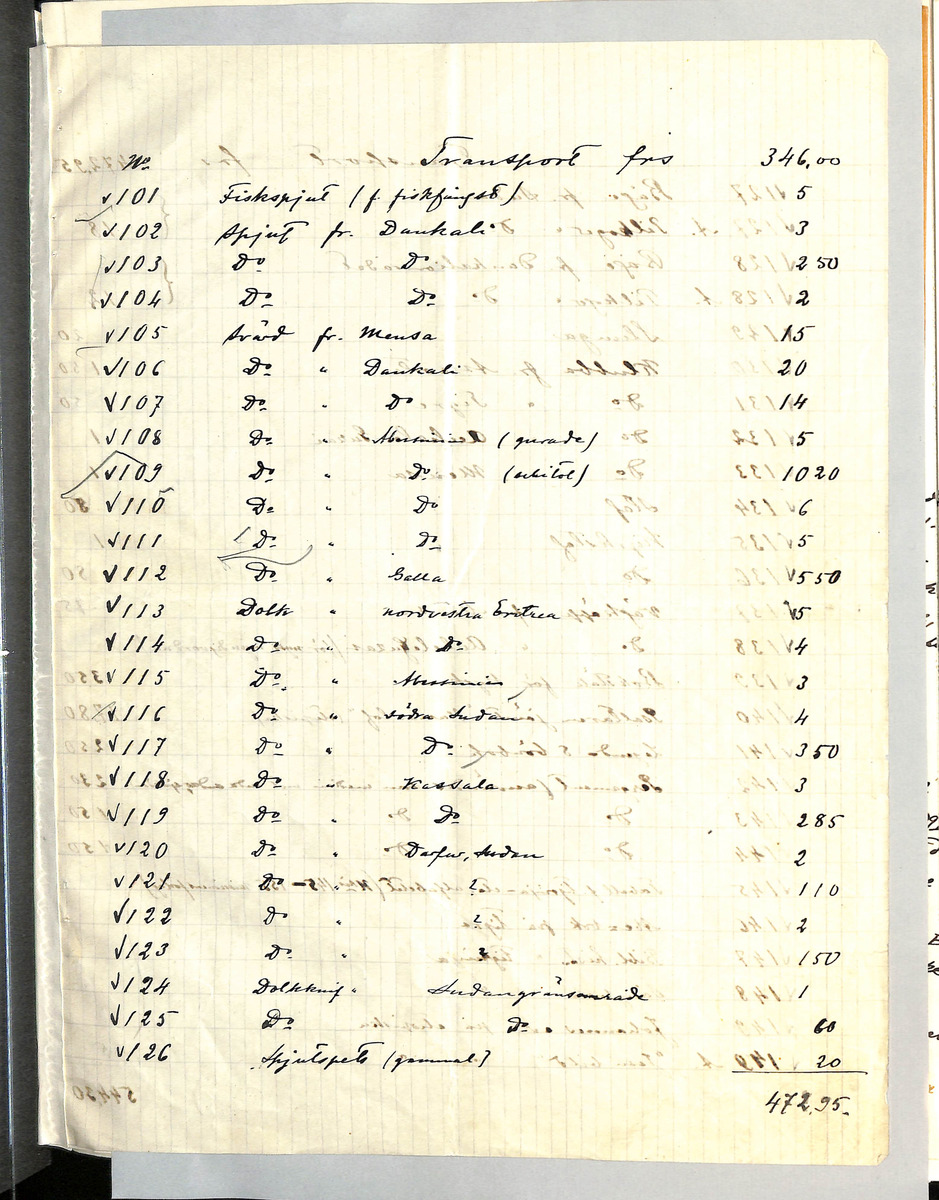 No Transport frs 346,00
√101 Fiskspjut (f. fiskfångst) 5
√102 Spjut fr. Dankali 3
√103 Do Do 2 50
√104 Do Do 2
√105 Svärd fr. Mensa 15
√106 Do " Dankali 20
√107 Do " Do 14
√108 Do " Abessinien (gurade) √5
√109 Do " Do (schitol) 10 20
√110 Do " Do √6
√111 Do " Do √5
√112 Do " Galla √5 50
√113 Dolk " nordvestra Eritrea √5
√114 Do " Do √4
√115 Do " Abessinien 3
√116 Do " södra Sudan 4
√117 Do " Do 3 50
√118 Do " Kassala 3
√119 Do " Do 2 85
√120 Do " Darfur, Sudan 2
√121 Do " ? 1 10
√122 Do " ? 2
√123 Do " ? 1 50
√124 Dolkknif " Sudangränsområde 1
√125 Do Do 60
√126 Spjutspets (gammal) 20
472,95.